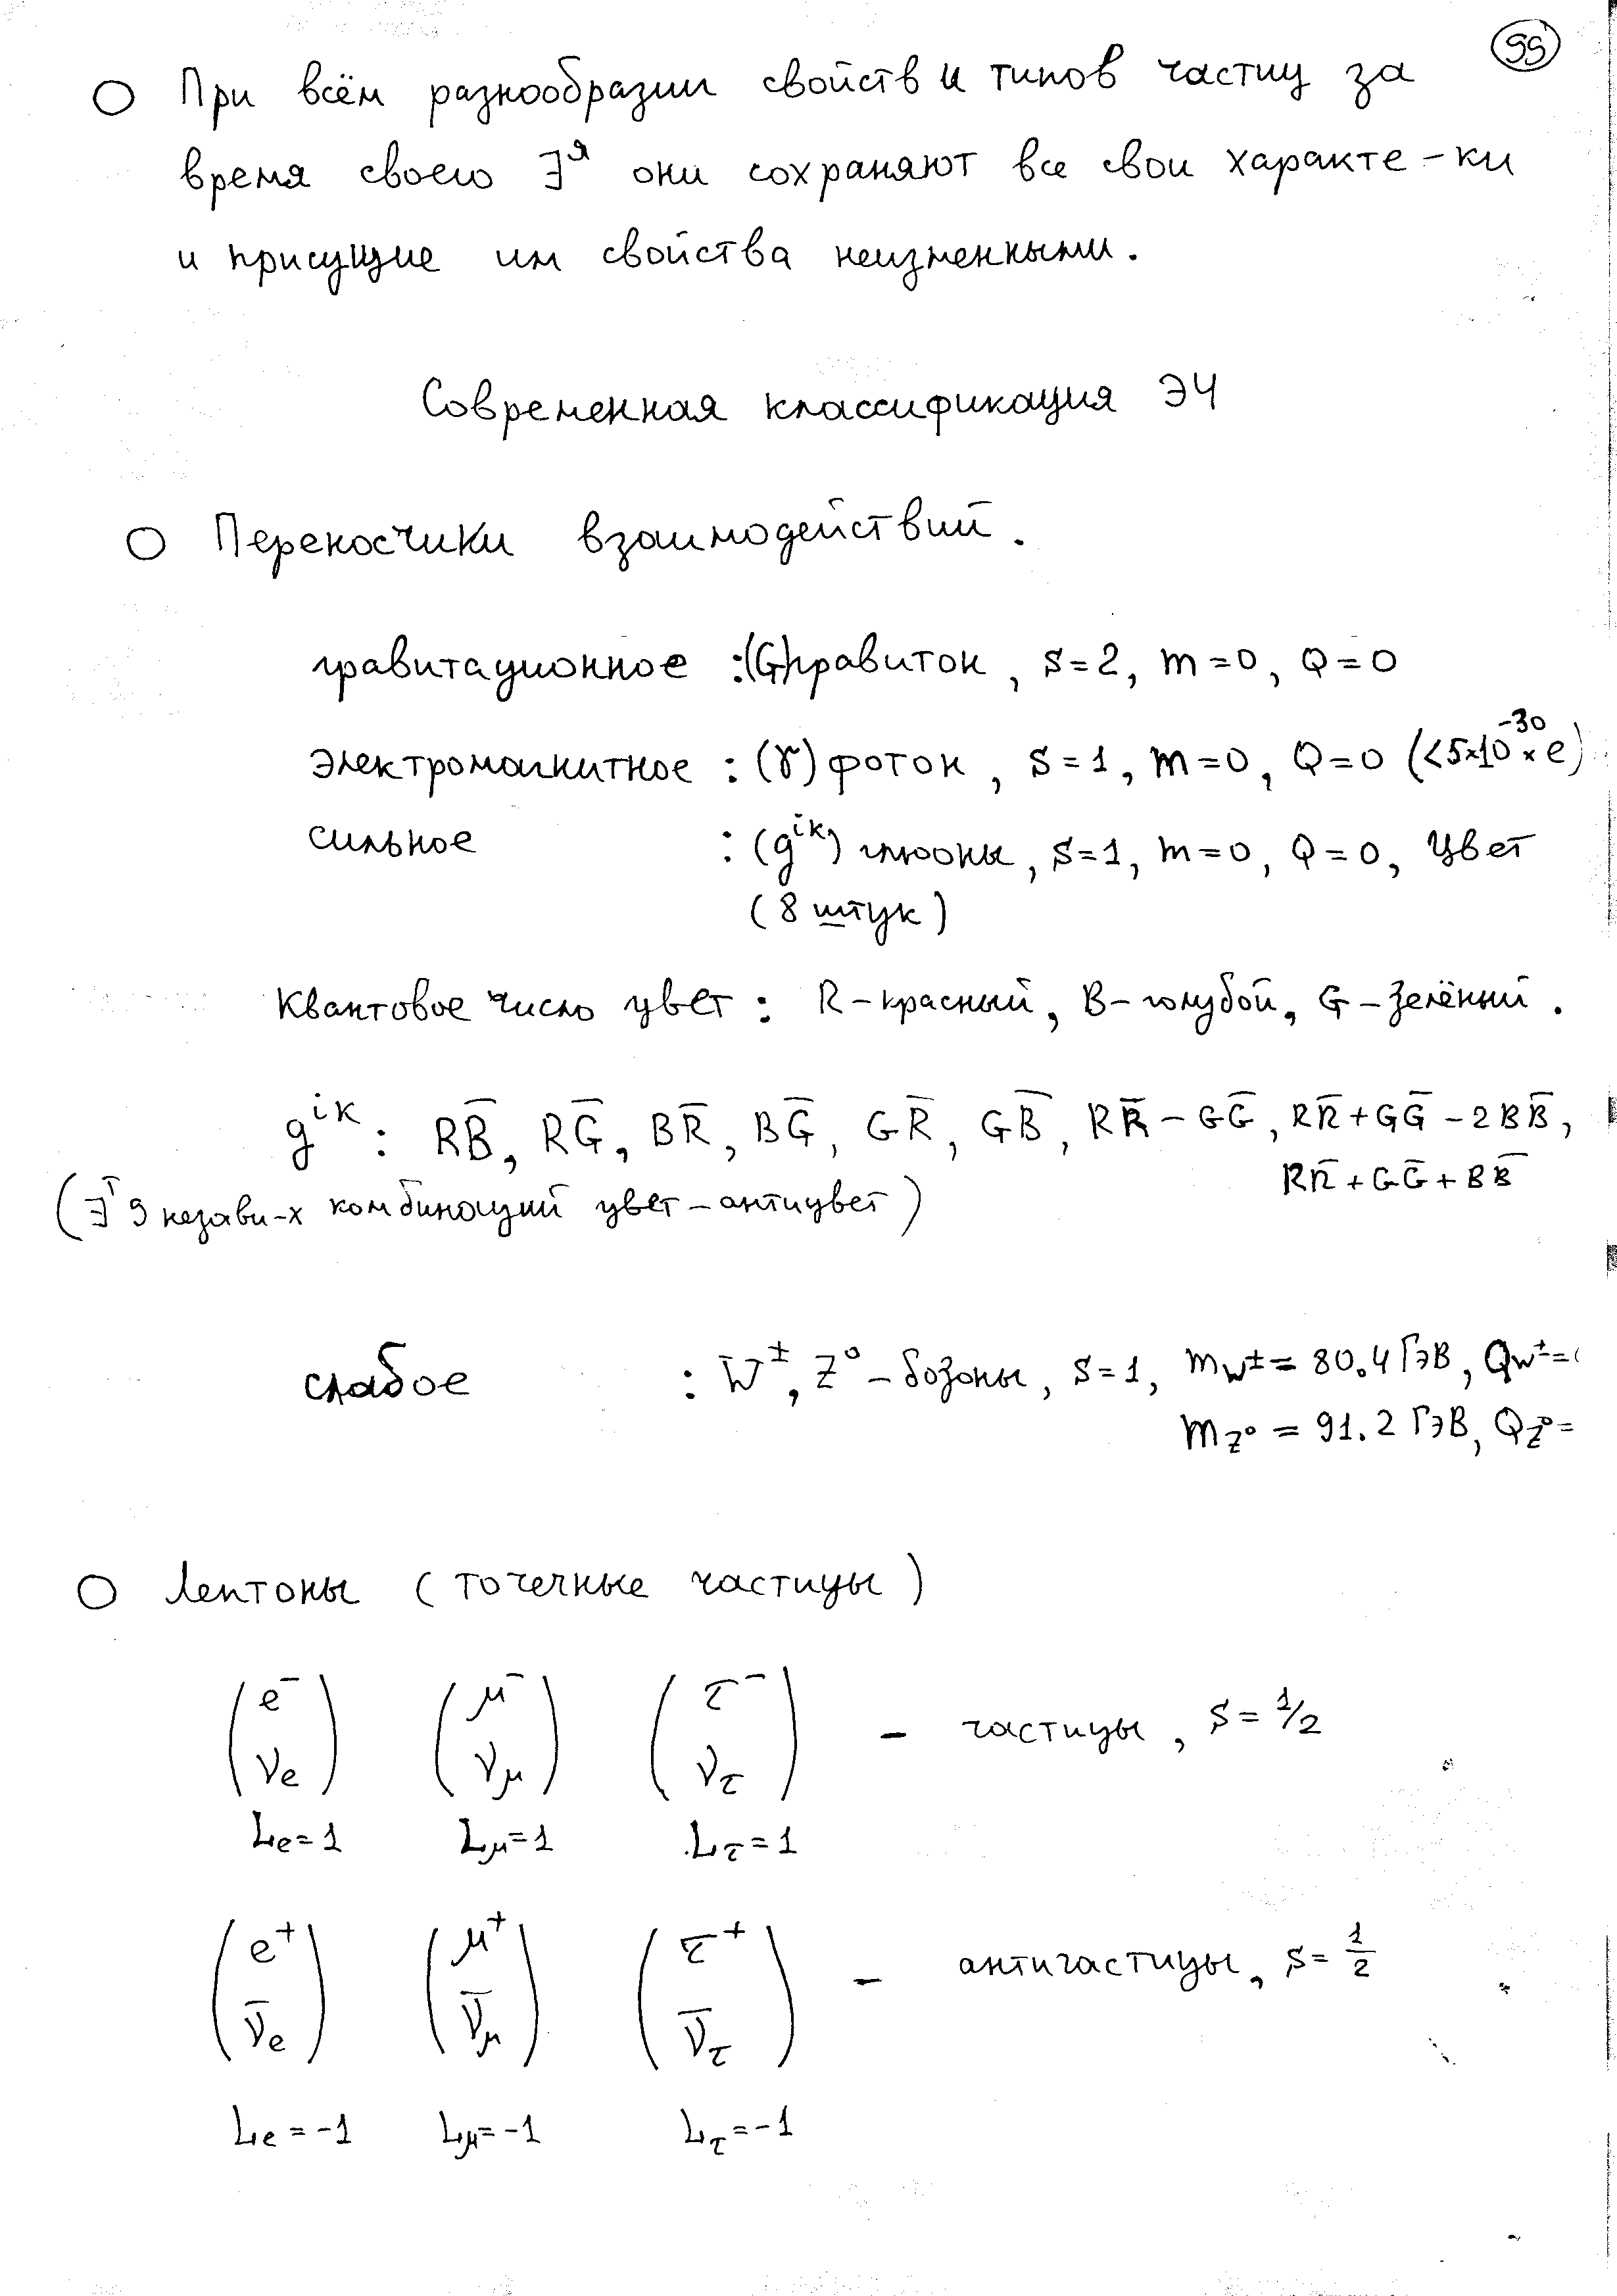 55
О При всём разнообразии свойств и типов частиц за
время своего ∃ᴽ они сохраняют все свои характе-ки
и присущие им свойства неизменными.
Современная классификация ЭЧ
О Переносчики взаимодействий.
гравитационное :(G)гравитон, S=2, m=0, Q=0
Электромагнитное : (γ) фотон, S=1, m=0, Q=0 (<5×10⁻³⁰×e)
сильное : (gⁱᵏ) глюоны, S=1, m=0, Q=0, цвет
(8 штук)
Квантовое число цвет: R-красный, B-голубой, G-зелёный.
gⁱᵏ: RB̅, RG̅, BR̅, BG̅, GR̅, GB̅, RR̅-GG̅, RR̅+GG̅-2BB̅,
RR̅+GG̅+BB̅
(∃ᵀ 9 незави-х комбинаций цвет-антицвет)
слабое : W±, Z⁰-бозоны, S=1, m_W± = 80.4 ГэВ, Q_W±=
m_Z⁰ = 91.2 ГэВ, Q_Z⁰=
О Лептоны (точечные частицы)
(e⁻ / νe) (μ⁻ / νμ) (τ⁻ / ντ) - частицы, S=1/2
Le=1 Lμ=1 Lτ=1
(e⁺ / ν̅e) (μ⁺ / ν̅μ) (τ⁺ / ν̅τ) - античастицы, S=1/2
Le=-1 Lμ=-1 Lτ=-1